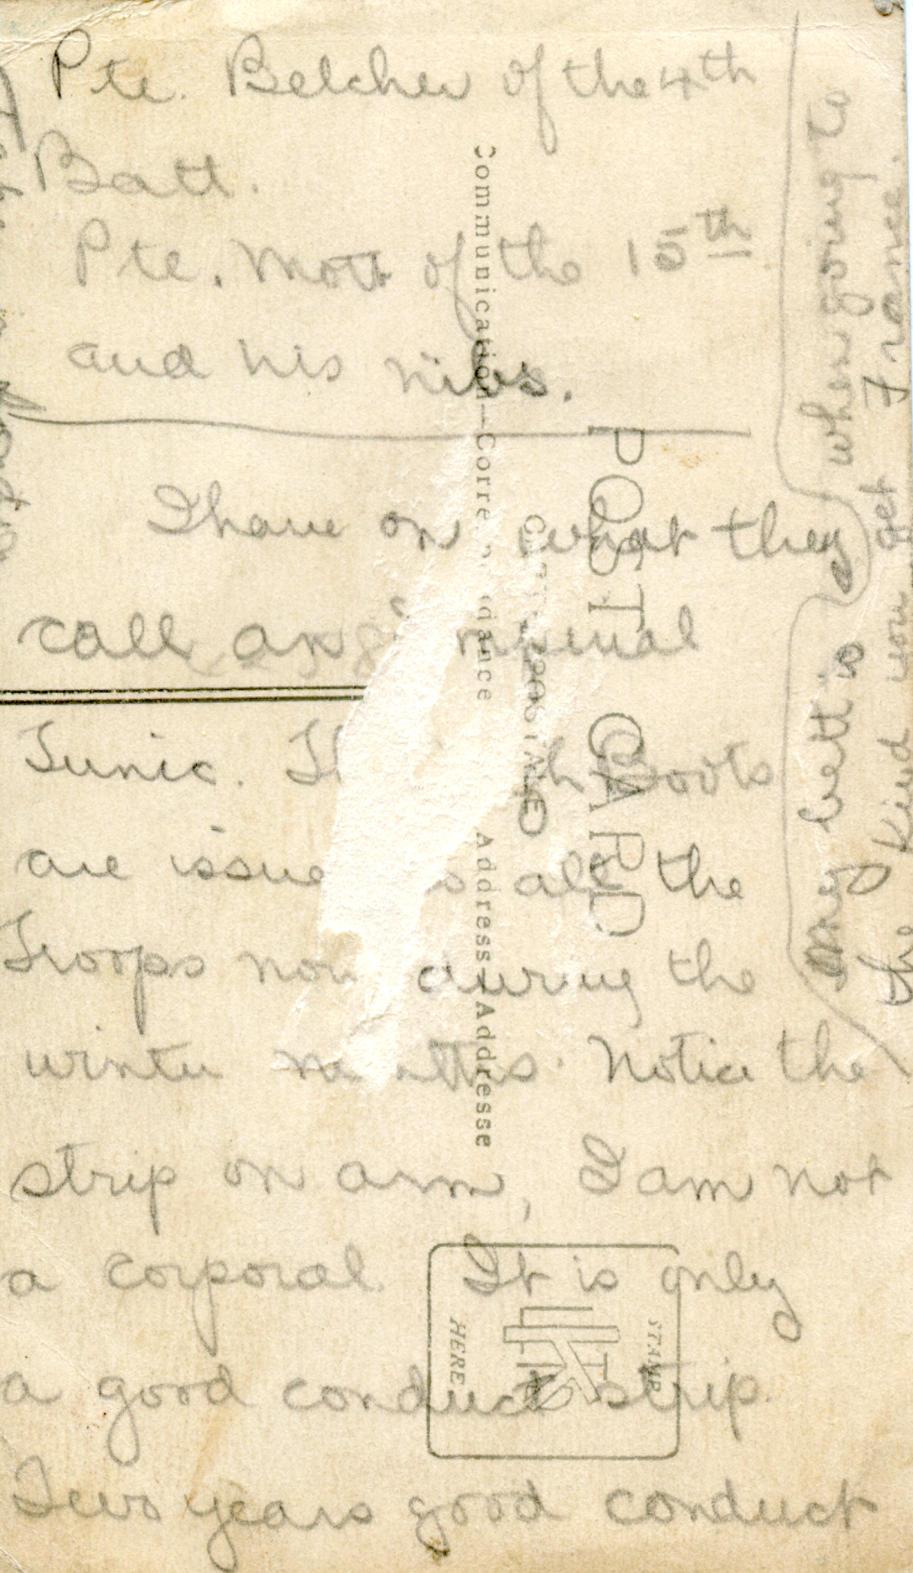 Pte. Belcher of the 4th
Batt.
Pte. Mott of the 15th
and his nibs.
I have on what they
call an
Tunic. Boots
are issue all the
Troops now during the
winter months. Notice the
strip on arm, I am not
a corporal. It is only
a good conduct strip.
Two years good conduct
My belt is
the kind you get
when going to
France.
POST CARD
Communication—Corre dance
Address—Addresse
STAMP
HERE